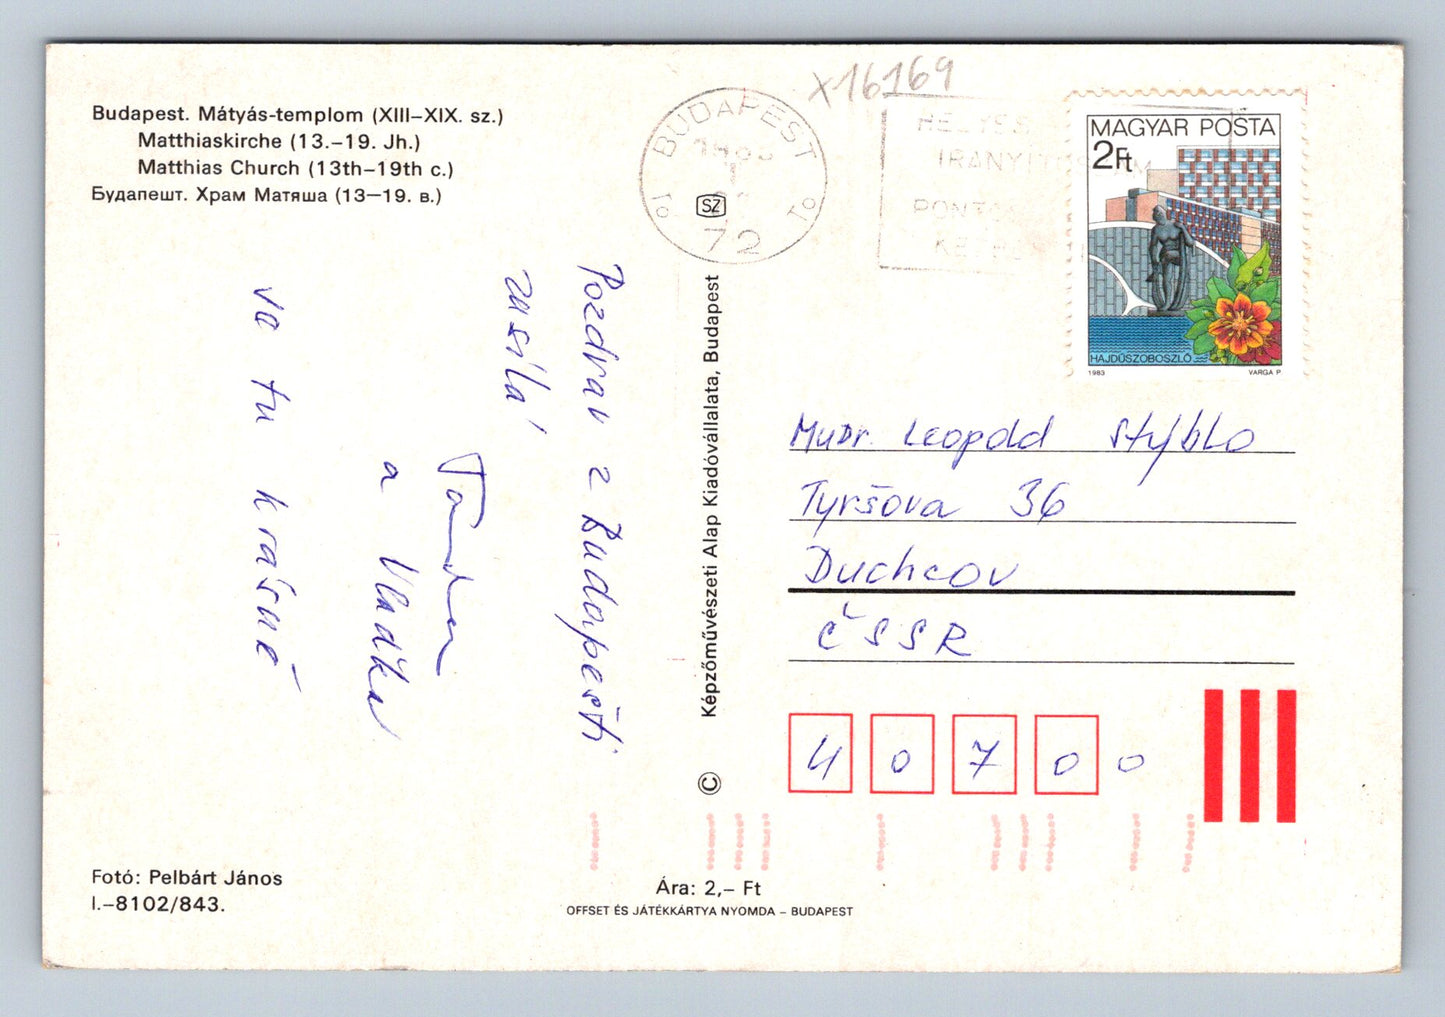 Budapest. Mátyás-templom (XIII–XIX. sz.)
Matthiaskirche (13.–19. Jh.)
Matthias Church (13th–19th c.)
Будапешт. Храм Матяша (13—19. в.)
X16169
BUDAPEST
SZ
72
MAGYAR POSTA
2Ft
HAJDÚSZOBOSZLÓ
1983 VARGA P.
Pozdrav z Budapešti
zasílá
a Vlaďka
je tu krásně
Képzőművészeti Alap Kiadóvállalata, Budapest
©
MuDr. Leopold Stýblo
Tyršova 36
Duchcov
ČSSR
40700
Fotó: Pelbárt János
I.–8102/843.
Ára: 2,– Ft
OFFSET ÉS JÁTÉKKÁRTYA NYOMDA – BUDAPEST